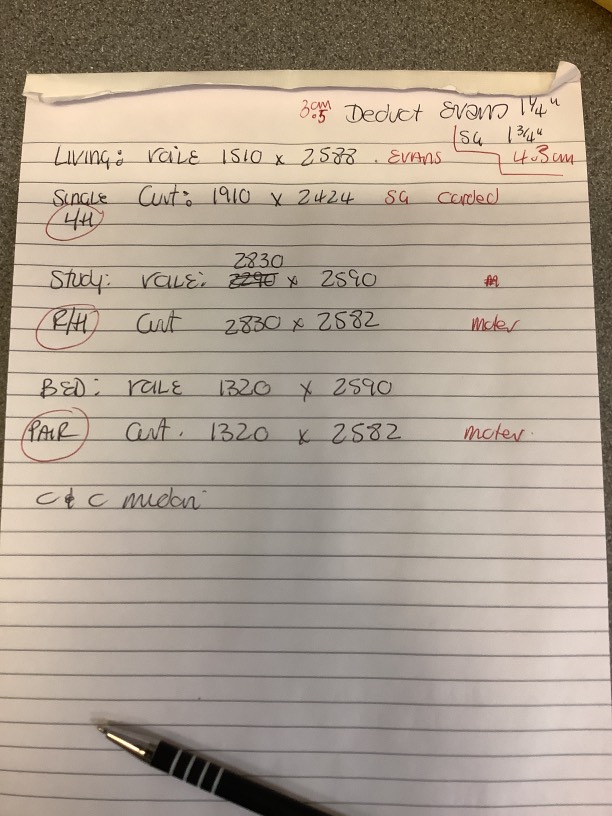 3cm .5 Deduct Evans 1 1/4"
SG 1 3/4"
4.3cm
LIVING: vale 1510 x 2588. EVANS
SINGLE Curt: 1910 x 2424 SG corded
L/H
2830
STUDY: vale: 2290 x 2590
R/H Curt 2830 x 2582 motor
BED: vale 1320 x 2590
PAIR Curt. 1320 x 2582 motor.
C & C